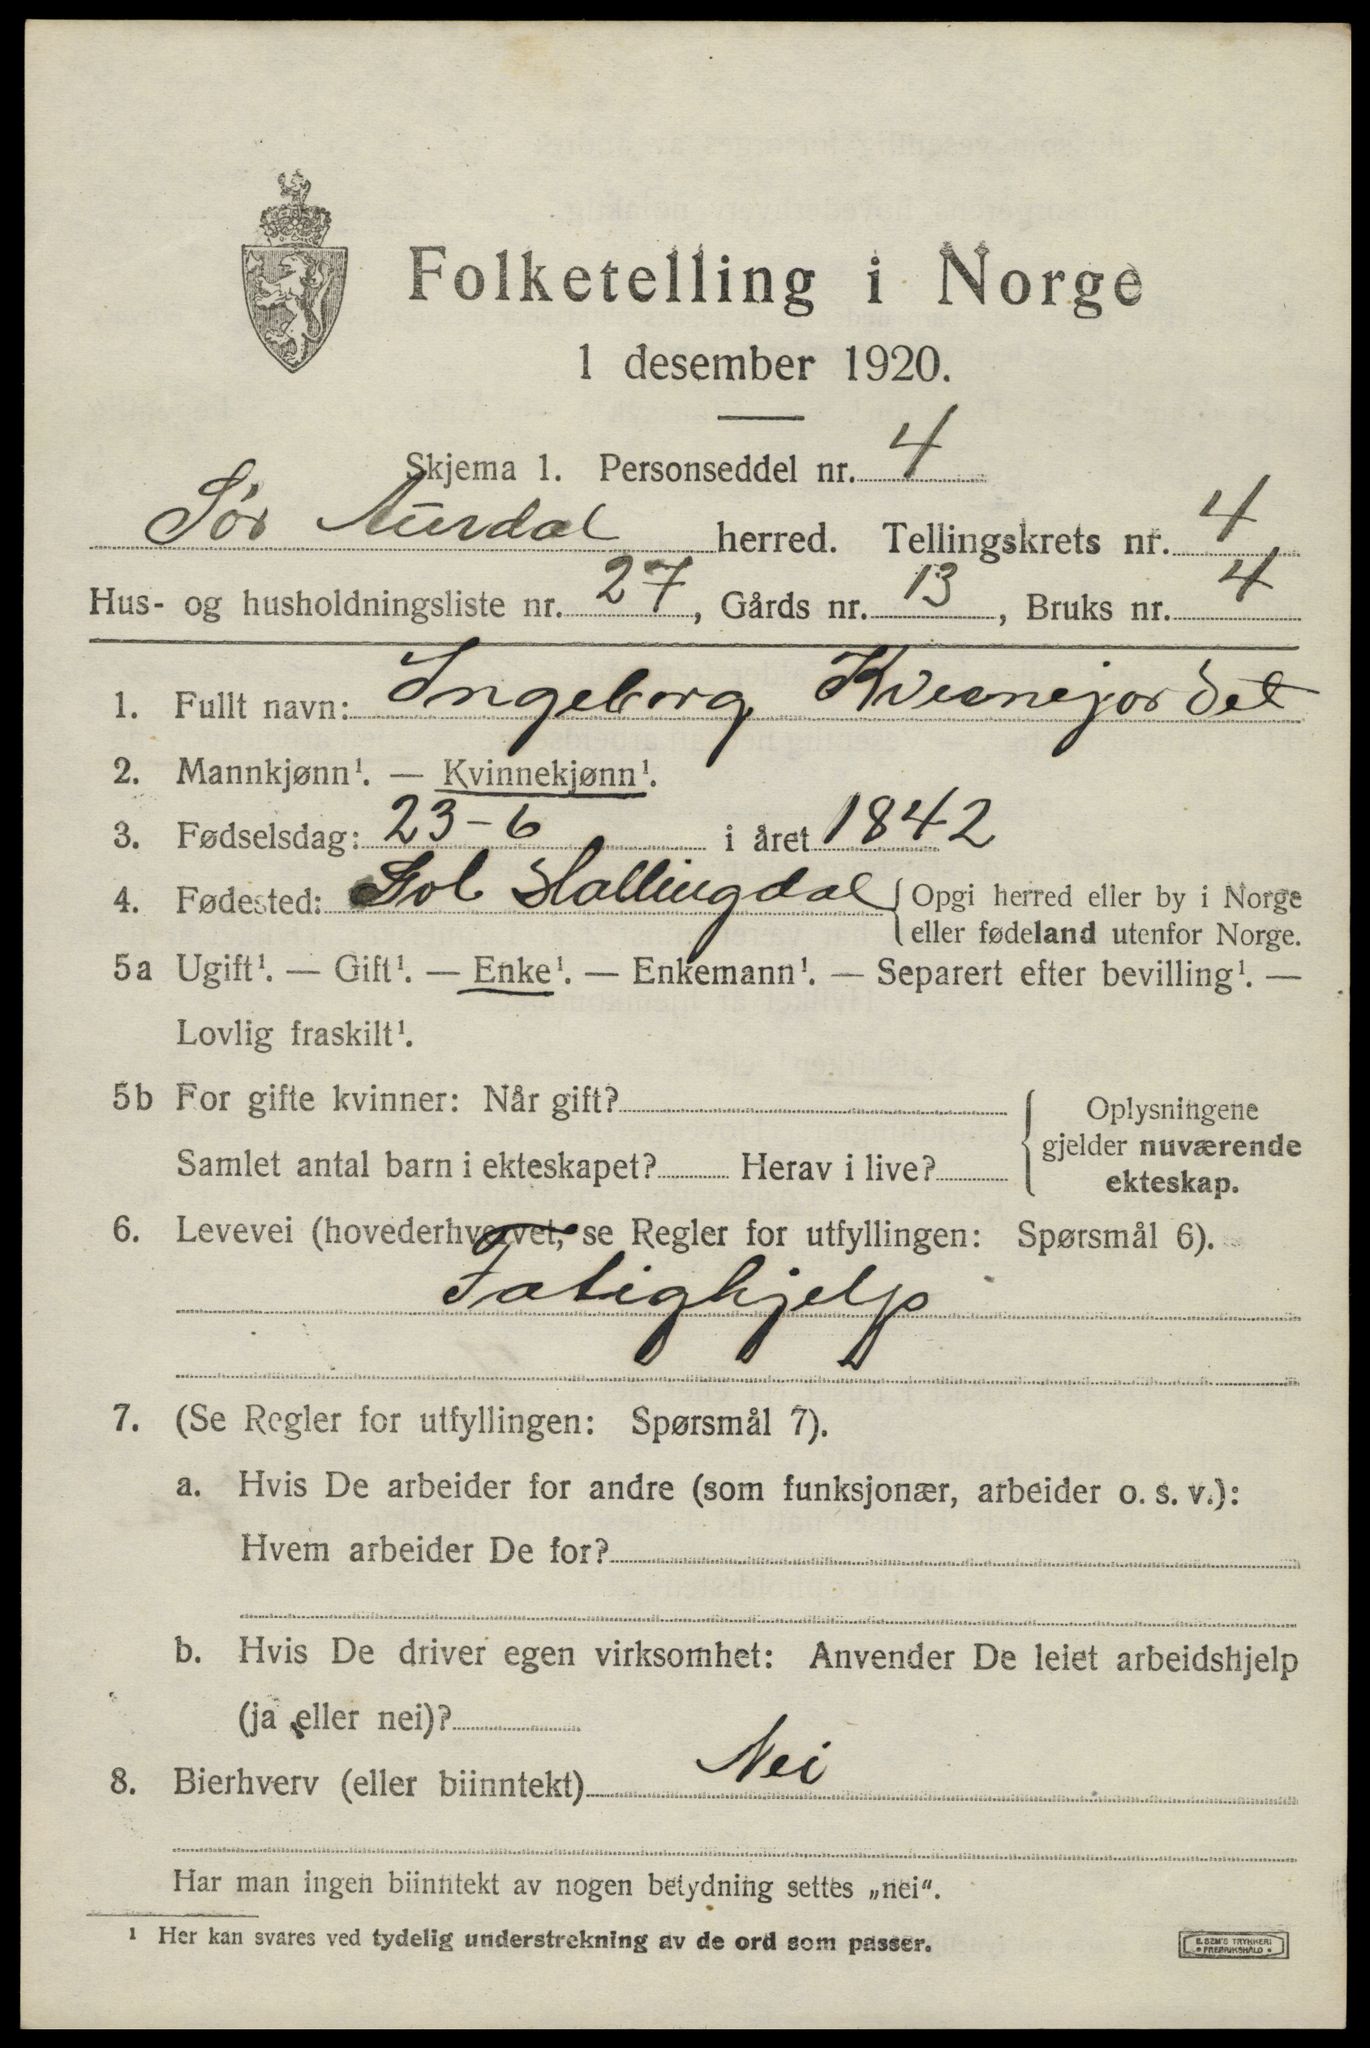 Folketelling i Norge
1 desember 1920.
Skjema 1. Personseddel nr. 4
Sør Aurdal herred. Tellingskrets nr. 4
Hus- og husholdningsliste nr. 27, Gårds nr. 13, Bruks nr. 4
1. Fullt navn: Ingeborg Kvernejordet
2. Mannkjønn¹. — Kvinnekjønn¹.
3. Fødselsdag: 23-6 i året 1842
4. Fødested: Gol Hallingdal { Opgi herred eller by i Norge
eller fødeland utenfor Norge.
5a Ugift¹. — Gift¹. — Enke¹. — Enkemann¹. — Separert efter bevilling¹. —
Lovlig fraskilt¹.
5b For gifte kvinner: Når gift?
Samlet antal barn i ekteskapet? Herav i live?
Oplysningene
gjelder nuværende
ekteskap.
6. Levevei (hovederhvervet, se Regler for utfyllingen: Spørsmål 6).
Fatighjelp
7. (Se Regler for utfyllingen: Spørsmål 7).
a. Hvis De arbeider for andre (som funksjonær, arbeider o. s. v.):
Hvem arbeider De for?
b. Hvis De driver egen virksomhet: Anvender De leiet arbeidshjelp
(ja eller nei)?
8. Bierhverv (eller biinntekt) Nei
Har man ingen biinntekt av nogen betydning settes „nei“.
¹ Her kan svares ved tydelig understrekning av de ord som passer.
E. SEM'S TRYKKERI
FREDRIKSHALD